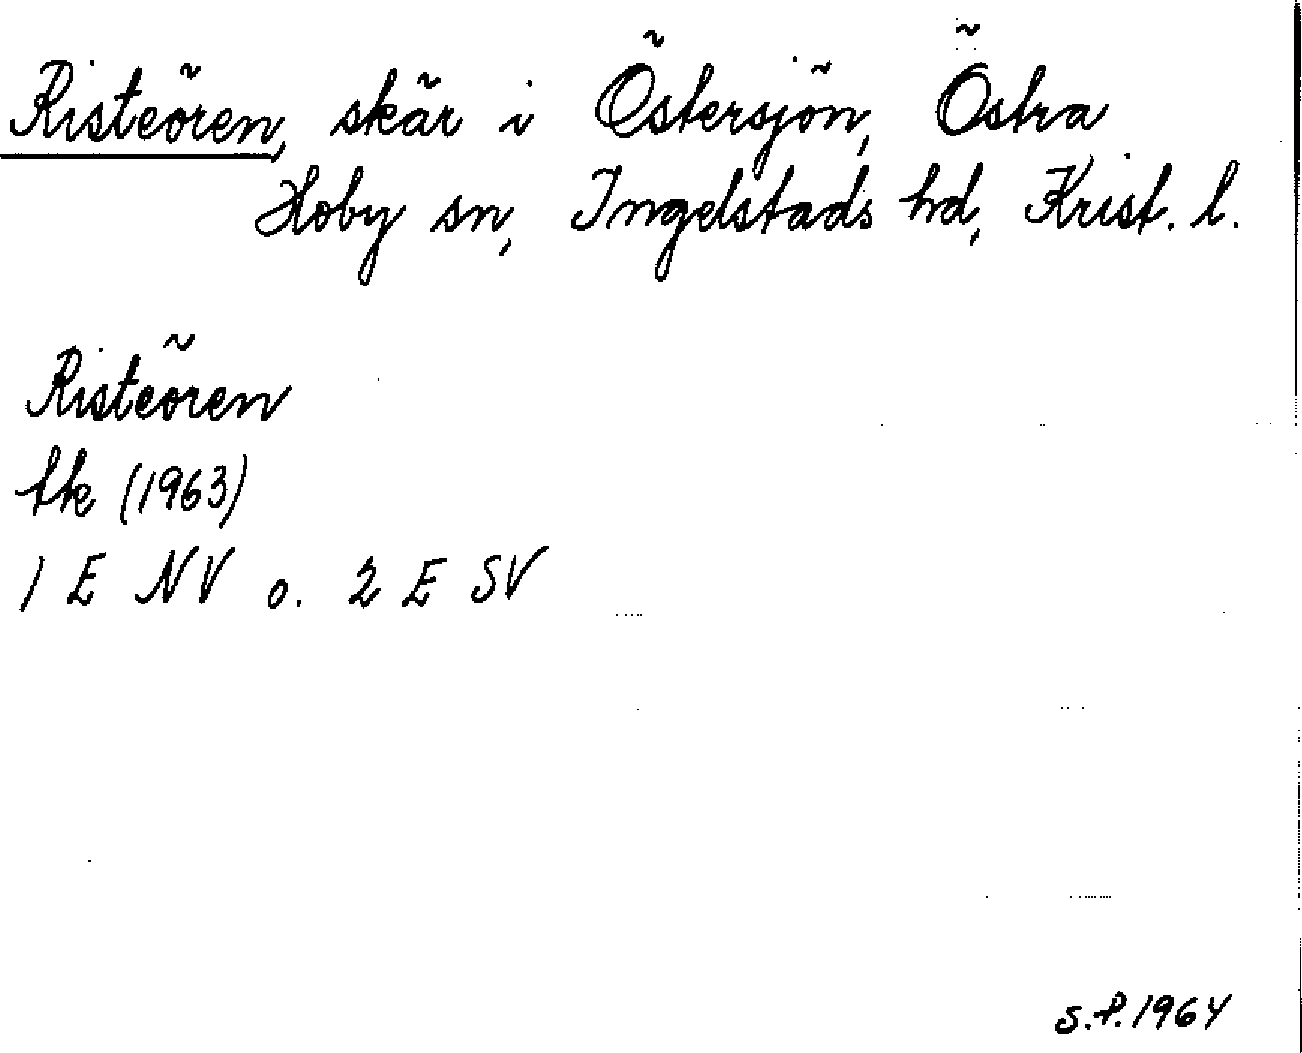 Risteören, skär i Östersjön, Östra
Hoby sn, Ingelstads hd, Krist. l.
Risteören
fk (1963)
1 E NV o. 2 E SV
S.P. 1964